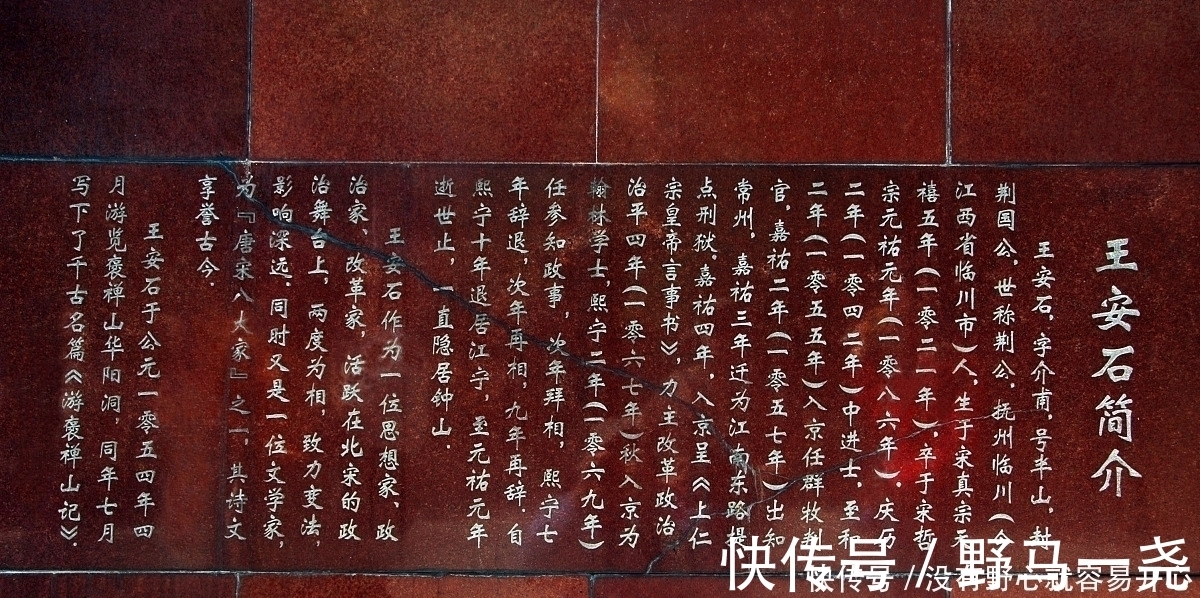 王安石简介
王安石，字介甫，号半山，封
荆国公，世称荆公，抚州临川（今
江西省临川市）人，生于宋真宗天
禧五年（一零二一年），卒于宋哲
宗元祐元年（一零八六年）．庆历
二年（一零四二年）中进士，至和
二年（一零五五年）入京任群牧判
官，嘉祐二年（一零五七年）出知
常州，嘉祐三年迁为江南东路提
点刑狱，嘉祐四年，入京呈《上仁
宗皇帝言事书》，力主改革政治
治平四年（一零六七年）秋入京为
翰林学士，熙宁二年（一零六九年）
任参知政事，次年拜相，熙宁七
年辞退，次年再相，九年再辞．自
熙宁十年退居江宁，至元祐元年
逝世止，一直隐居钟山．
王安石作为一位思想家、政
治家、改革家，活跃在北宋的政
治舞台上，两度为相，致力变法，
影响深远．同时又是一位文学家，
为『唐宋八大家』之一，其诗文
享誉古今．
王安石于公元一零五四年四
月游览褒禅山华阳洞，同年七月
写下了千古名篇《游褒禅山记》．
快传号/野马一尧
快传号/没有野心就容易